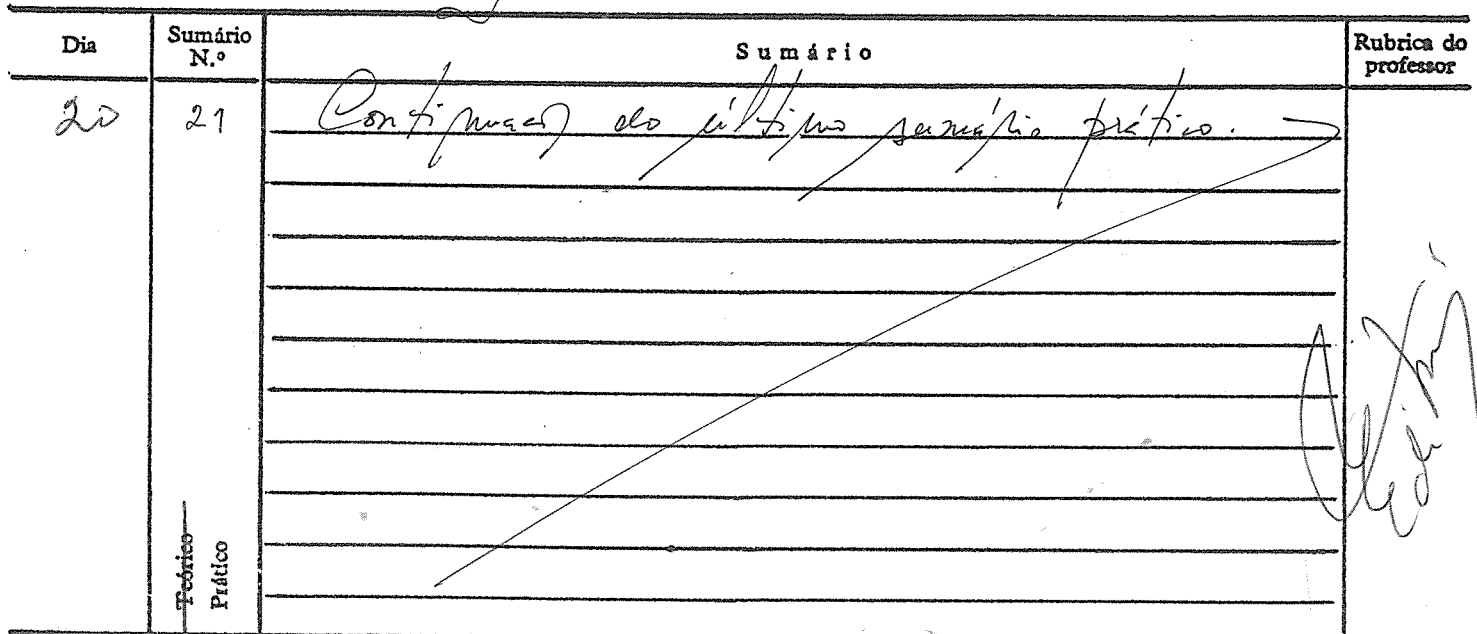 Dia
Sumário N.º
Sumário
Rubrica do professor
20
21
Continuação do último sumário prático.
Teórico
Prático